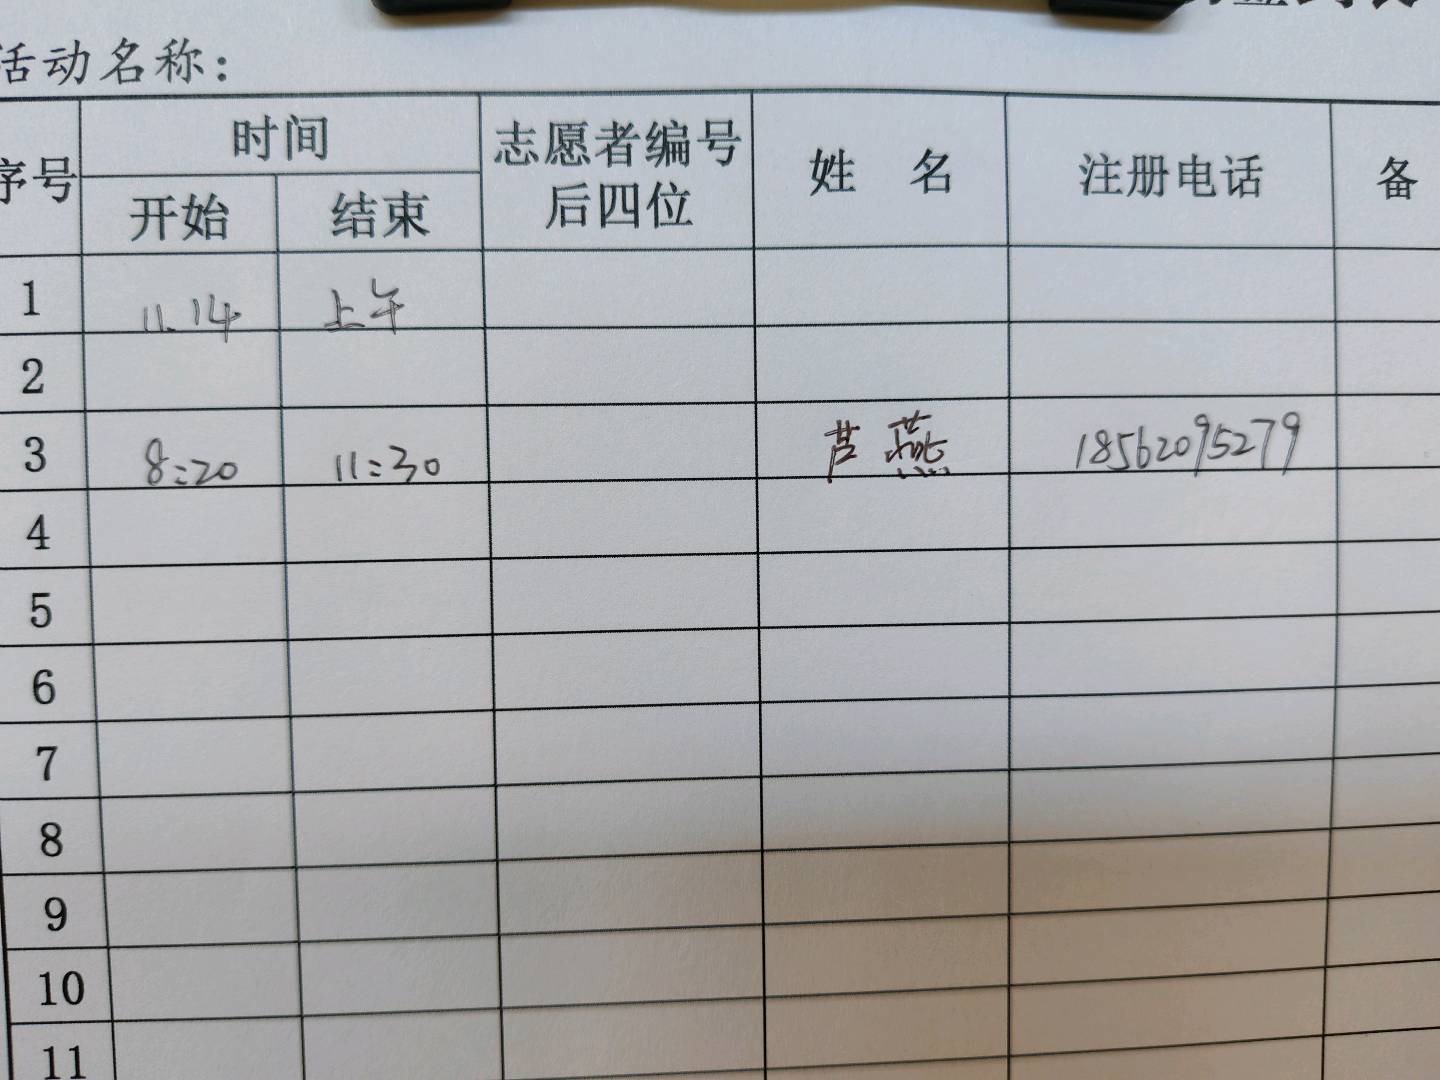 活动名称：
序号 时间 志愿者编号后四位 姓 名 注册电话 备
开始 结束
1 11.14 上午
2
3 8:20 11:30 芦燕 18562095279
4
5
6
7
8
9
10
11